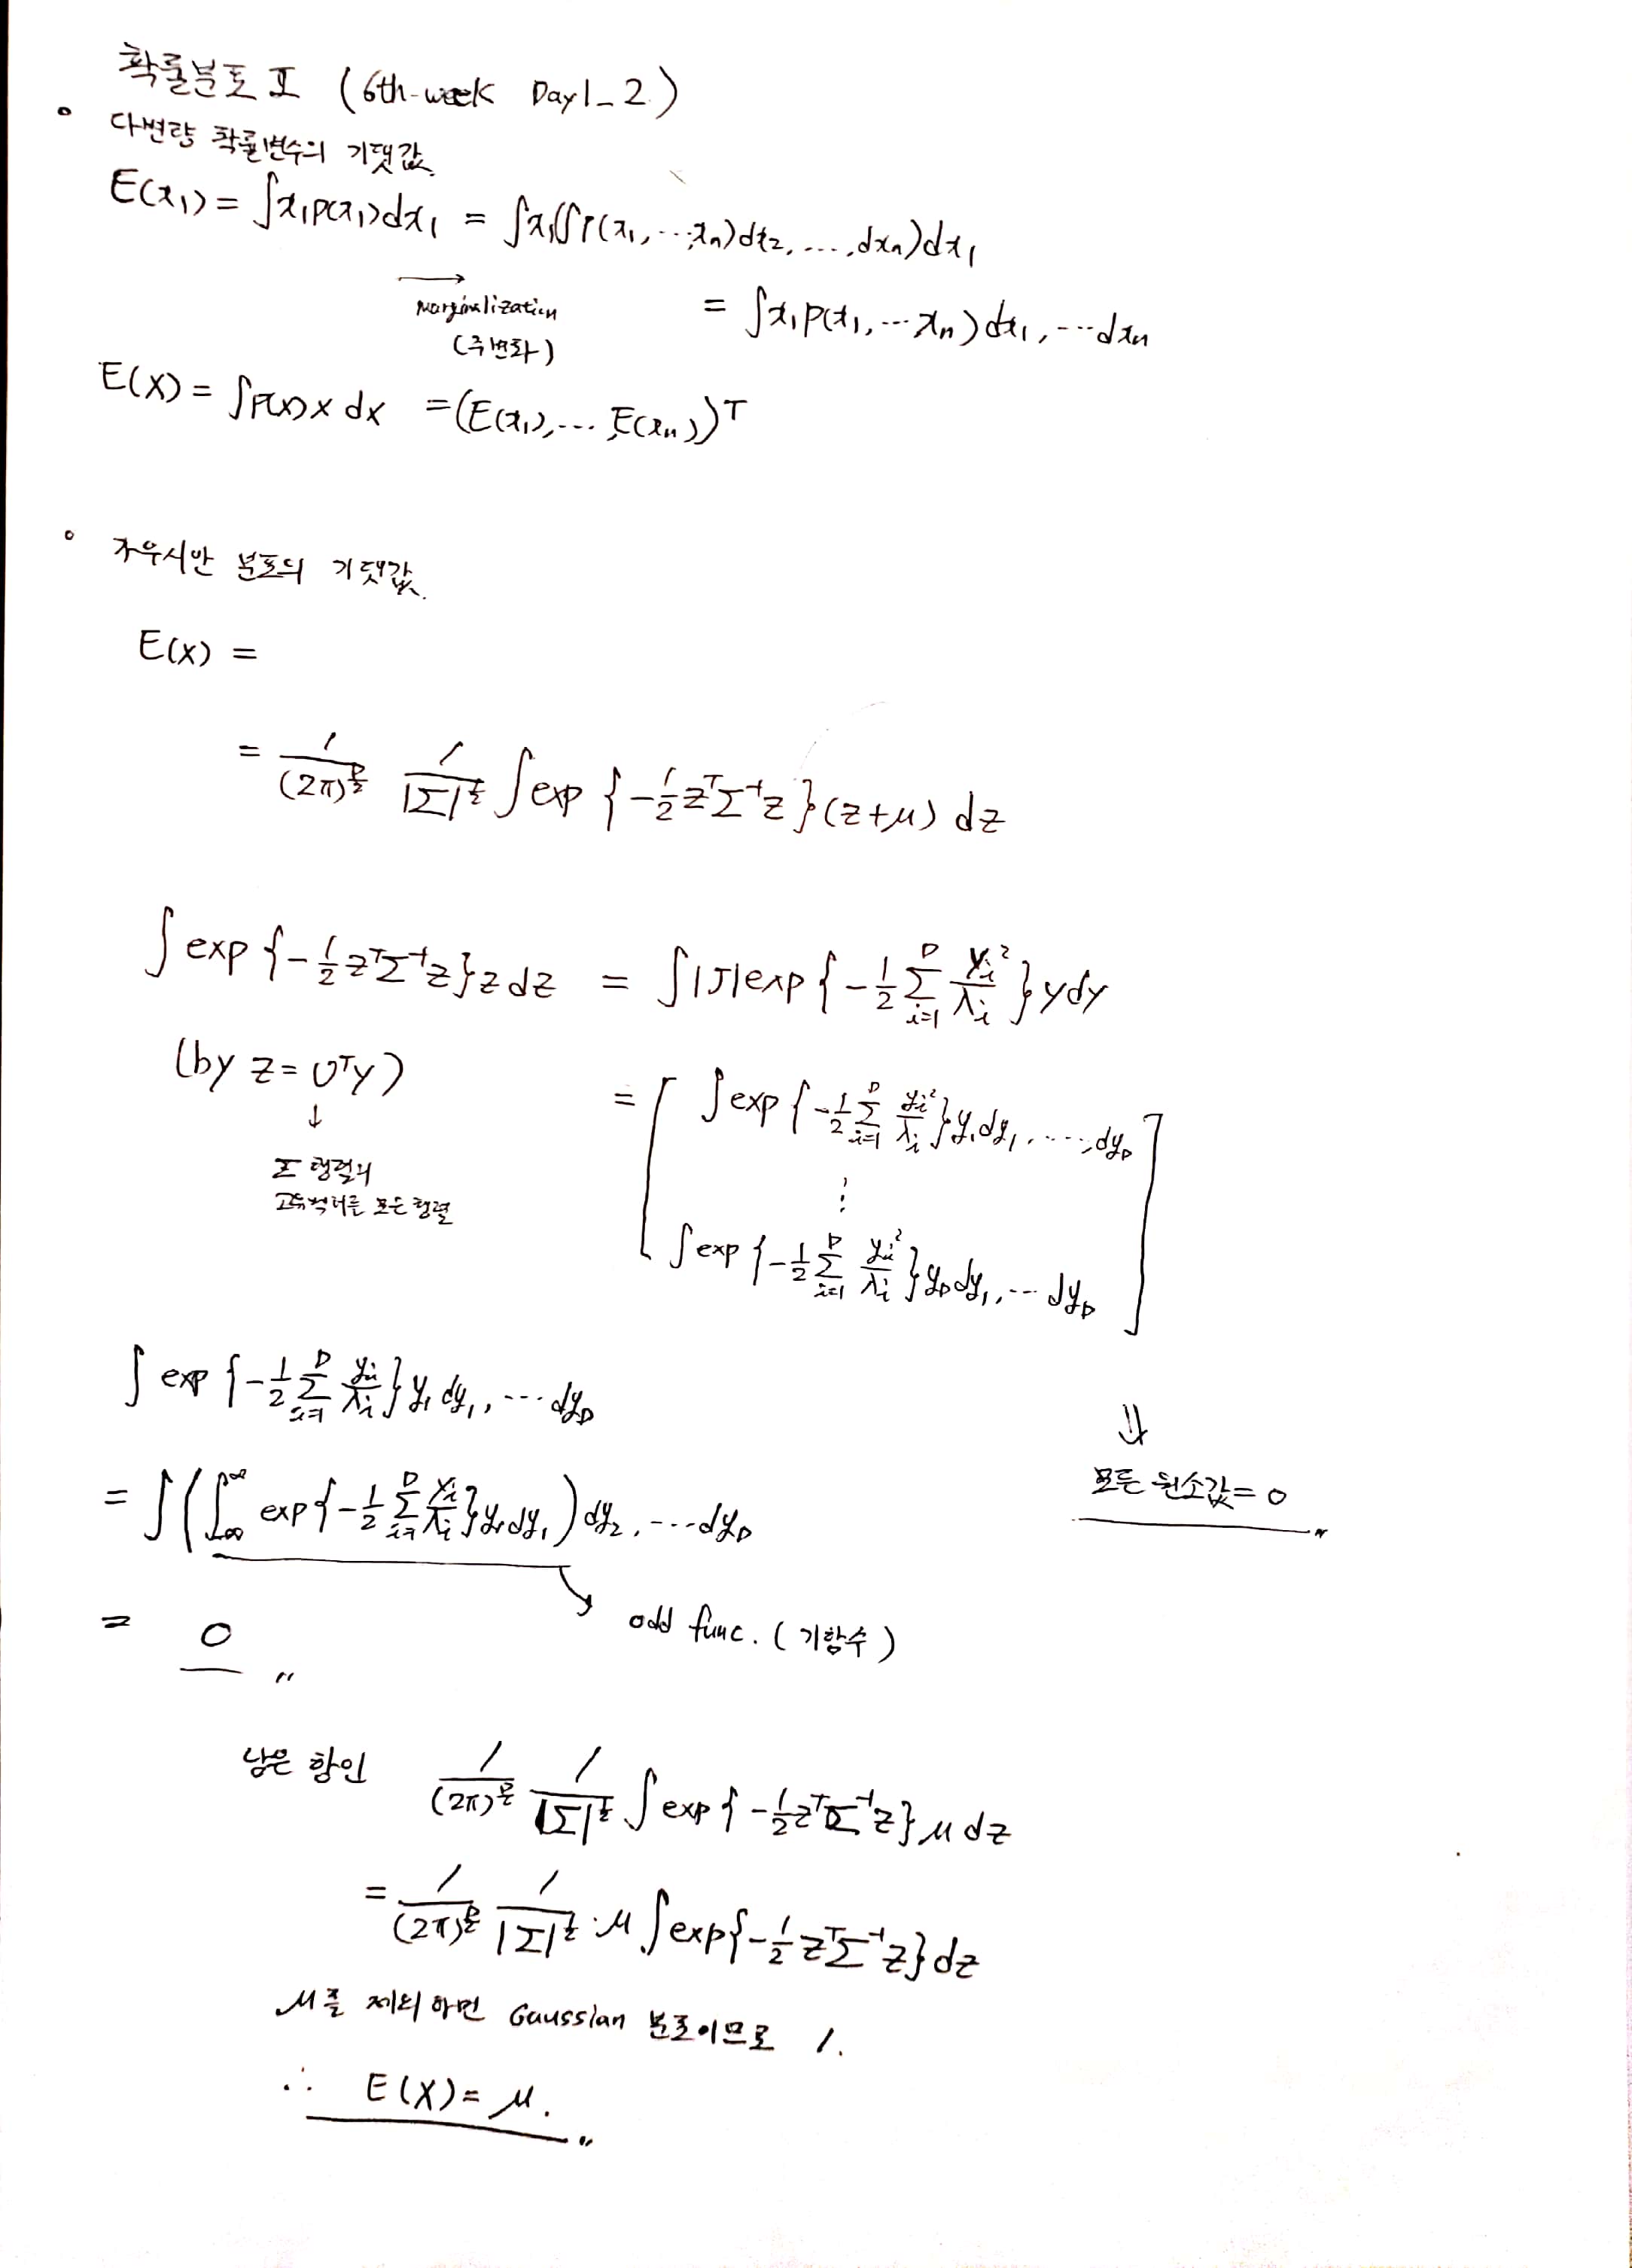 확률분포 Ⅱ (6th-week Day1_2.)
◦ 다변량 확률변수의 기댓값.
E(x₁) = ∫x₁p(x₁)dx₁ = ∫x₁(∫p(x₁, ⋯, xₙ)dx₂, ⋯, dxₙ)dx₁
→ marginalization = ∫x₁p(x₁, ⋯ xₙ)dx₁, ⋯ dxₙ
(주변화)
E(X) = ∫p(x)x dx = (E(x₁), ⋯, E(xₙ))ᵀ
◦ 가우시안 분포의 기댓값.
E(X) =
= 1/(2π)^(D/2) 1/|Σ|^(1/2) ∫exp{-1/2 zᵀΣ⁻¹z}(z+μ) dz
∫exp{-1/2 zᵀΣ⁻¹z}z dz = ∫|J|exp{-1/2 Σ_{i=1}^{D} y_i²/λ_i}ydy
(by z = Uᵀy) = [ ∫exp{-1/2 Σ_{i=1}^{D} y_i²/λ_i}y₁dy₁, ⋯, dy_D
↓ ⋮
Σ 행렬의
고유벡터를 모은 행렬
∫exp{-1/2 Σ_{i=1}^{D} y_i²/λ_i}y_D dy₁, ⋯ dy_D ]
∫exp{-1/2 Σ_{i=1}^{D} y_i/λ_i}y₁dy₁, ⋯ dy_D
⇓
모든 원소값 = 0 〃
= ∫(∫_{-∞}^{∞} exp{-1/2 Σ_{i=1}^{D} y_i/λ_i}y₁dy₁)dy₂, ⋯ dy_D
→ odd func. (기함수)
= 0 〃
남은 항인 1/(2π)^(D/2) 1/|Σ|^(1/2) ∫exp{-1/2 zᵀΣ⁻¹z}μ dz
= 1/(2π)^(D/2) 1/|Σ|^(1/2) · μ ∫exp{-1/2 zᵀΣ⁻¹z}dz
μ를 제외하면 Gaussian 분포이므로 1.
∴ E(X) = μ. 〃